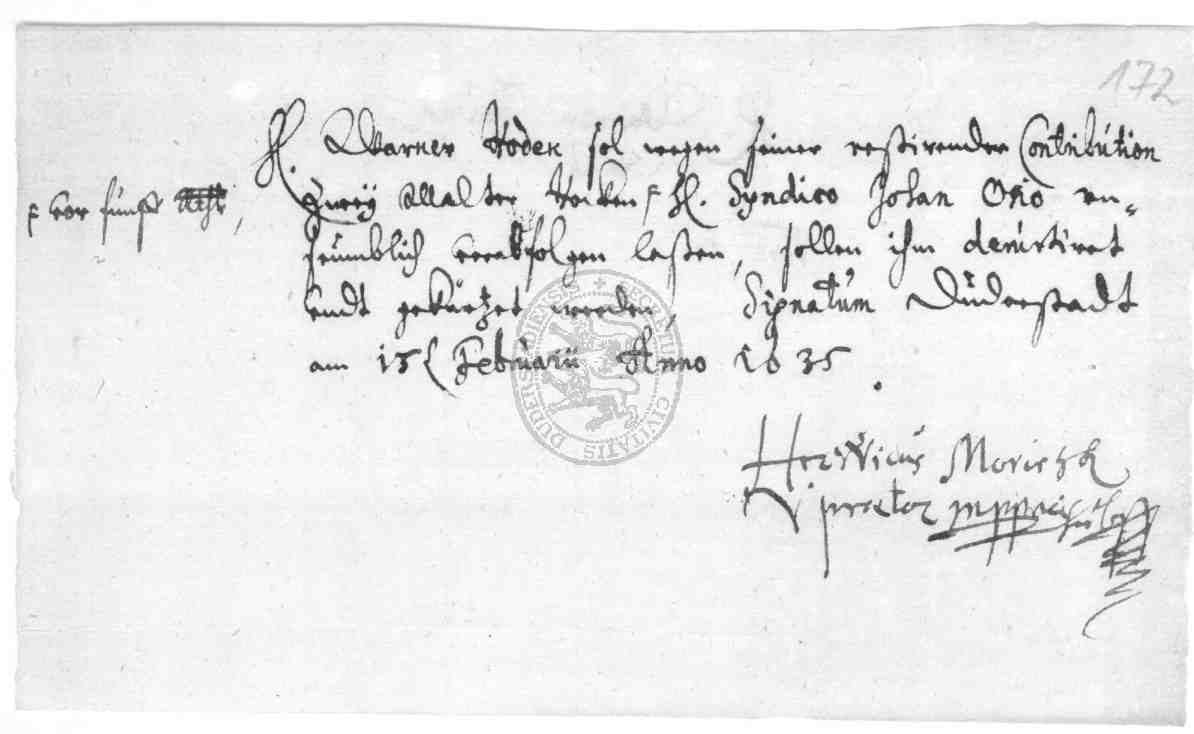 172
H. Warner Roden sol wegen seiner restirender Contribution
Zweÿ Malter Rocken ⌈ H. Syndico Johan Otto un-
⌈ vor fünff
seumblich verabfolgen laßen, sollen ihm decurtiret
undt gekürtzet werden, Signatum Duderstadt
am 15 Februarii Anno 1635
Hertwicus Moritz
praetor mppria
SIGILLUM CIVITATIS DUDERSTADIENSIS